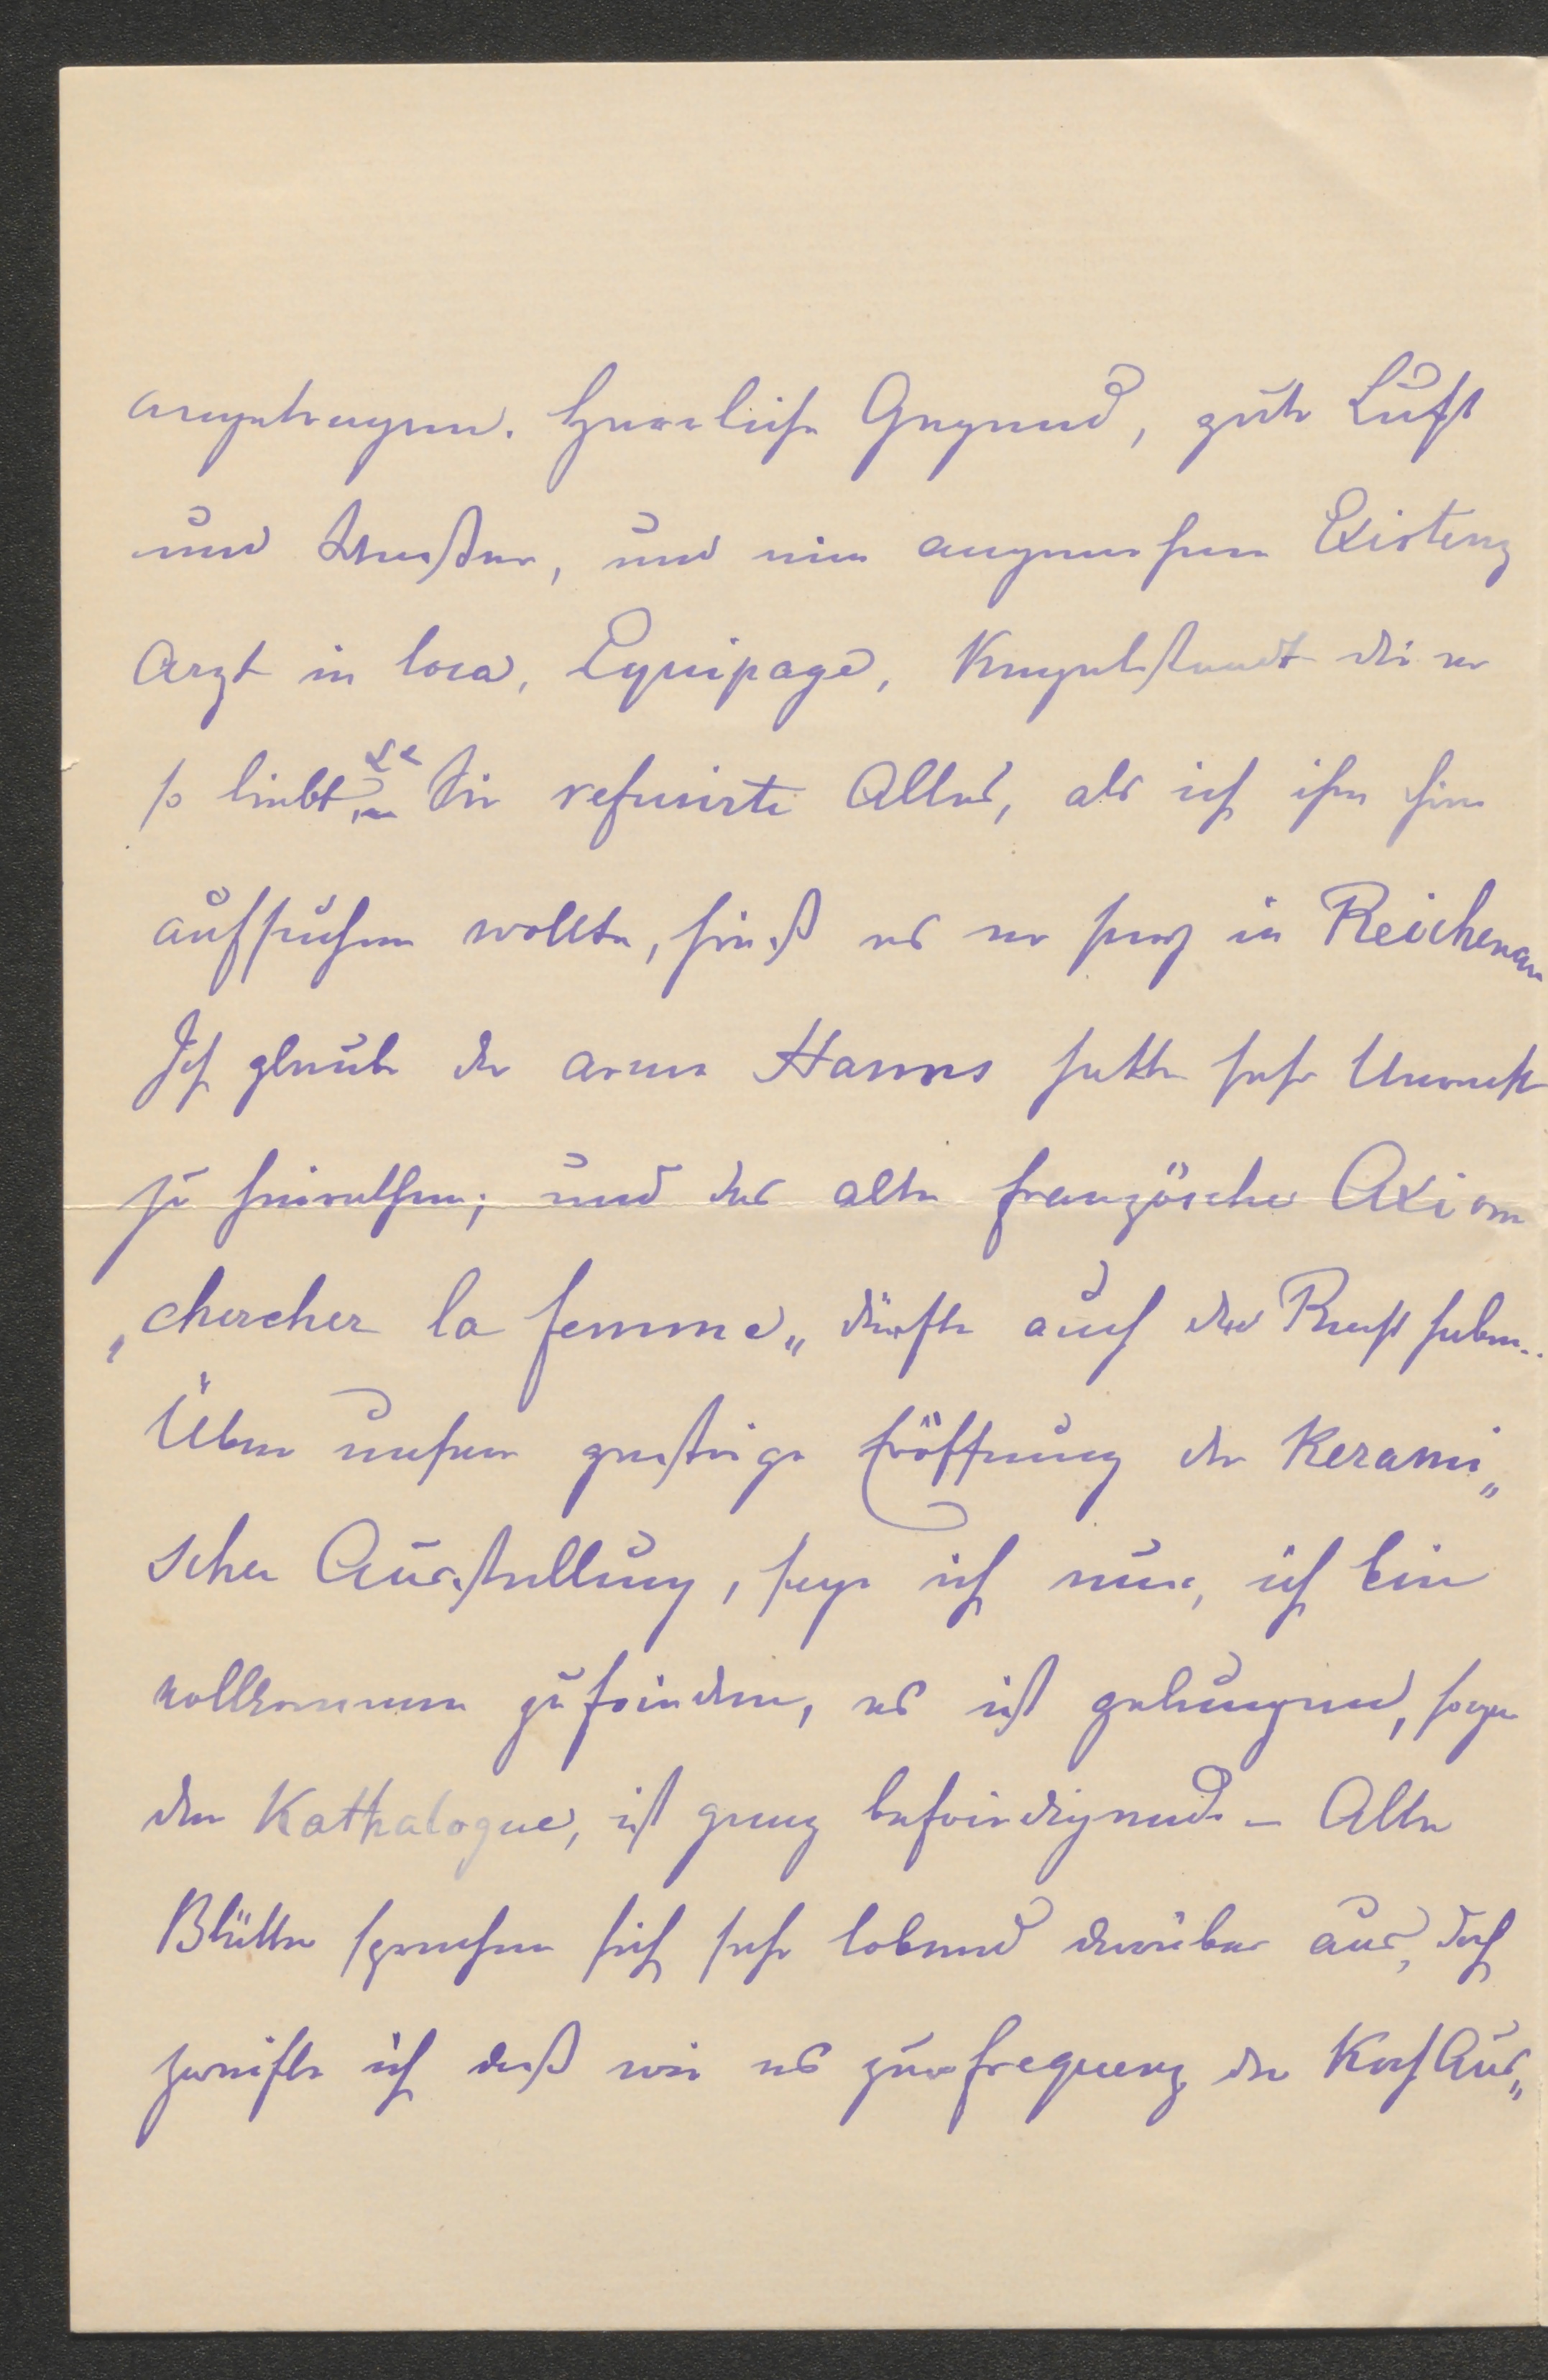 angetragen. Herrliche Gegend, gute Luft
und Wasser, und eine angenehme Existenz
Arzt in loca, Equipage, Kegelstandt die er
so liebt, etc Sie refusirte Alles, als ich ihn hin
aufsuchen wollte, hieß es er sey in Reichenau
Ich glaube der arme Hanns hatte sehr Unrecht
zu heirathen; und das alte französche Axiom
„chercher la femme„ dürfte auch da Recht haben..
Über unsere gestrige Eröffnung der Kerami„
schen Ausstellung, sage ich nur, ich bin
vollkommen zufrieden, es ist gelungen, sogar
der Kathalogue, ist ganz befriedigend – Alle
Blätter sprechen sich sehr lobend darüber aus, doch
zweifle ich daß wir es zur frequenz der Koch Aus„